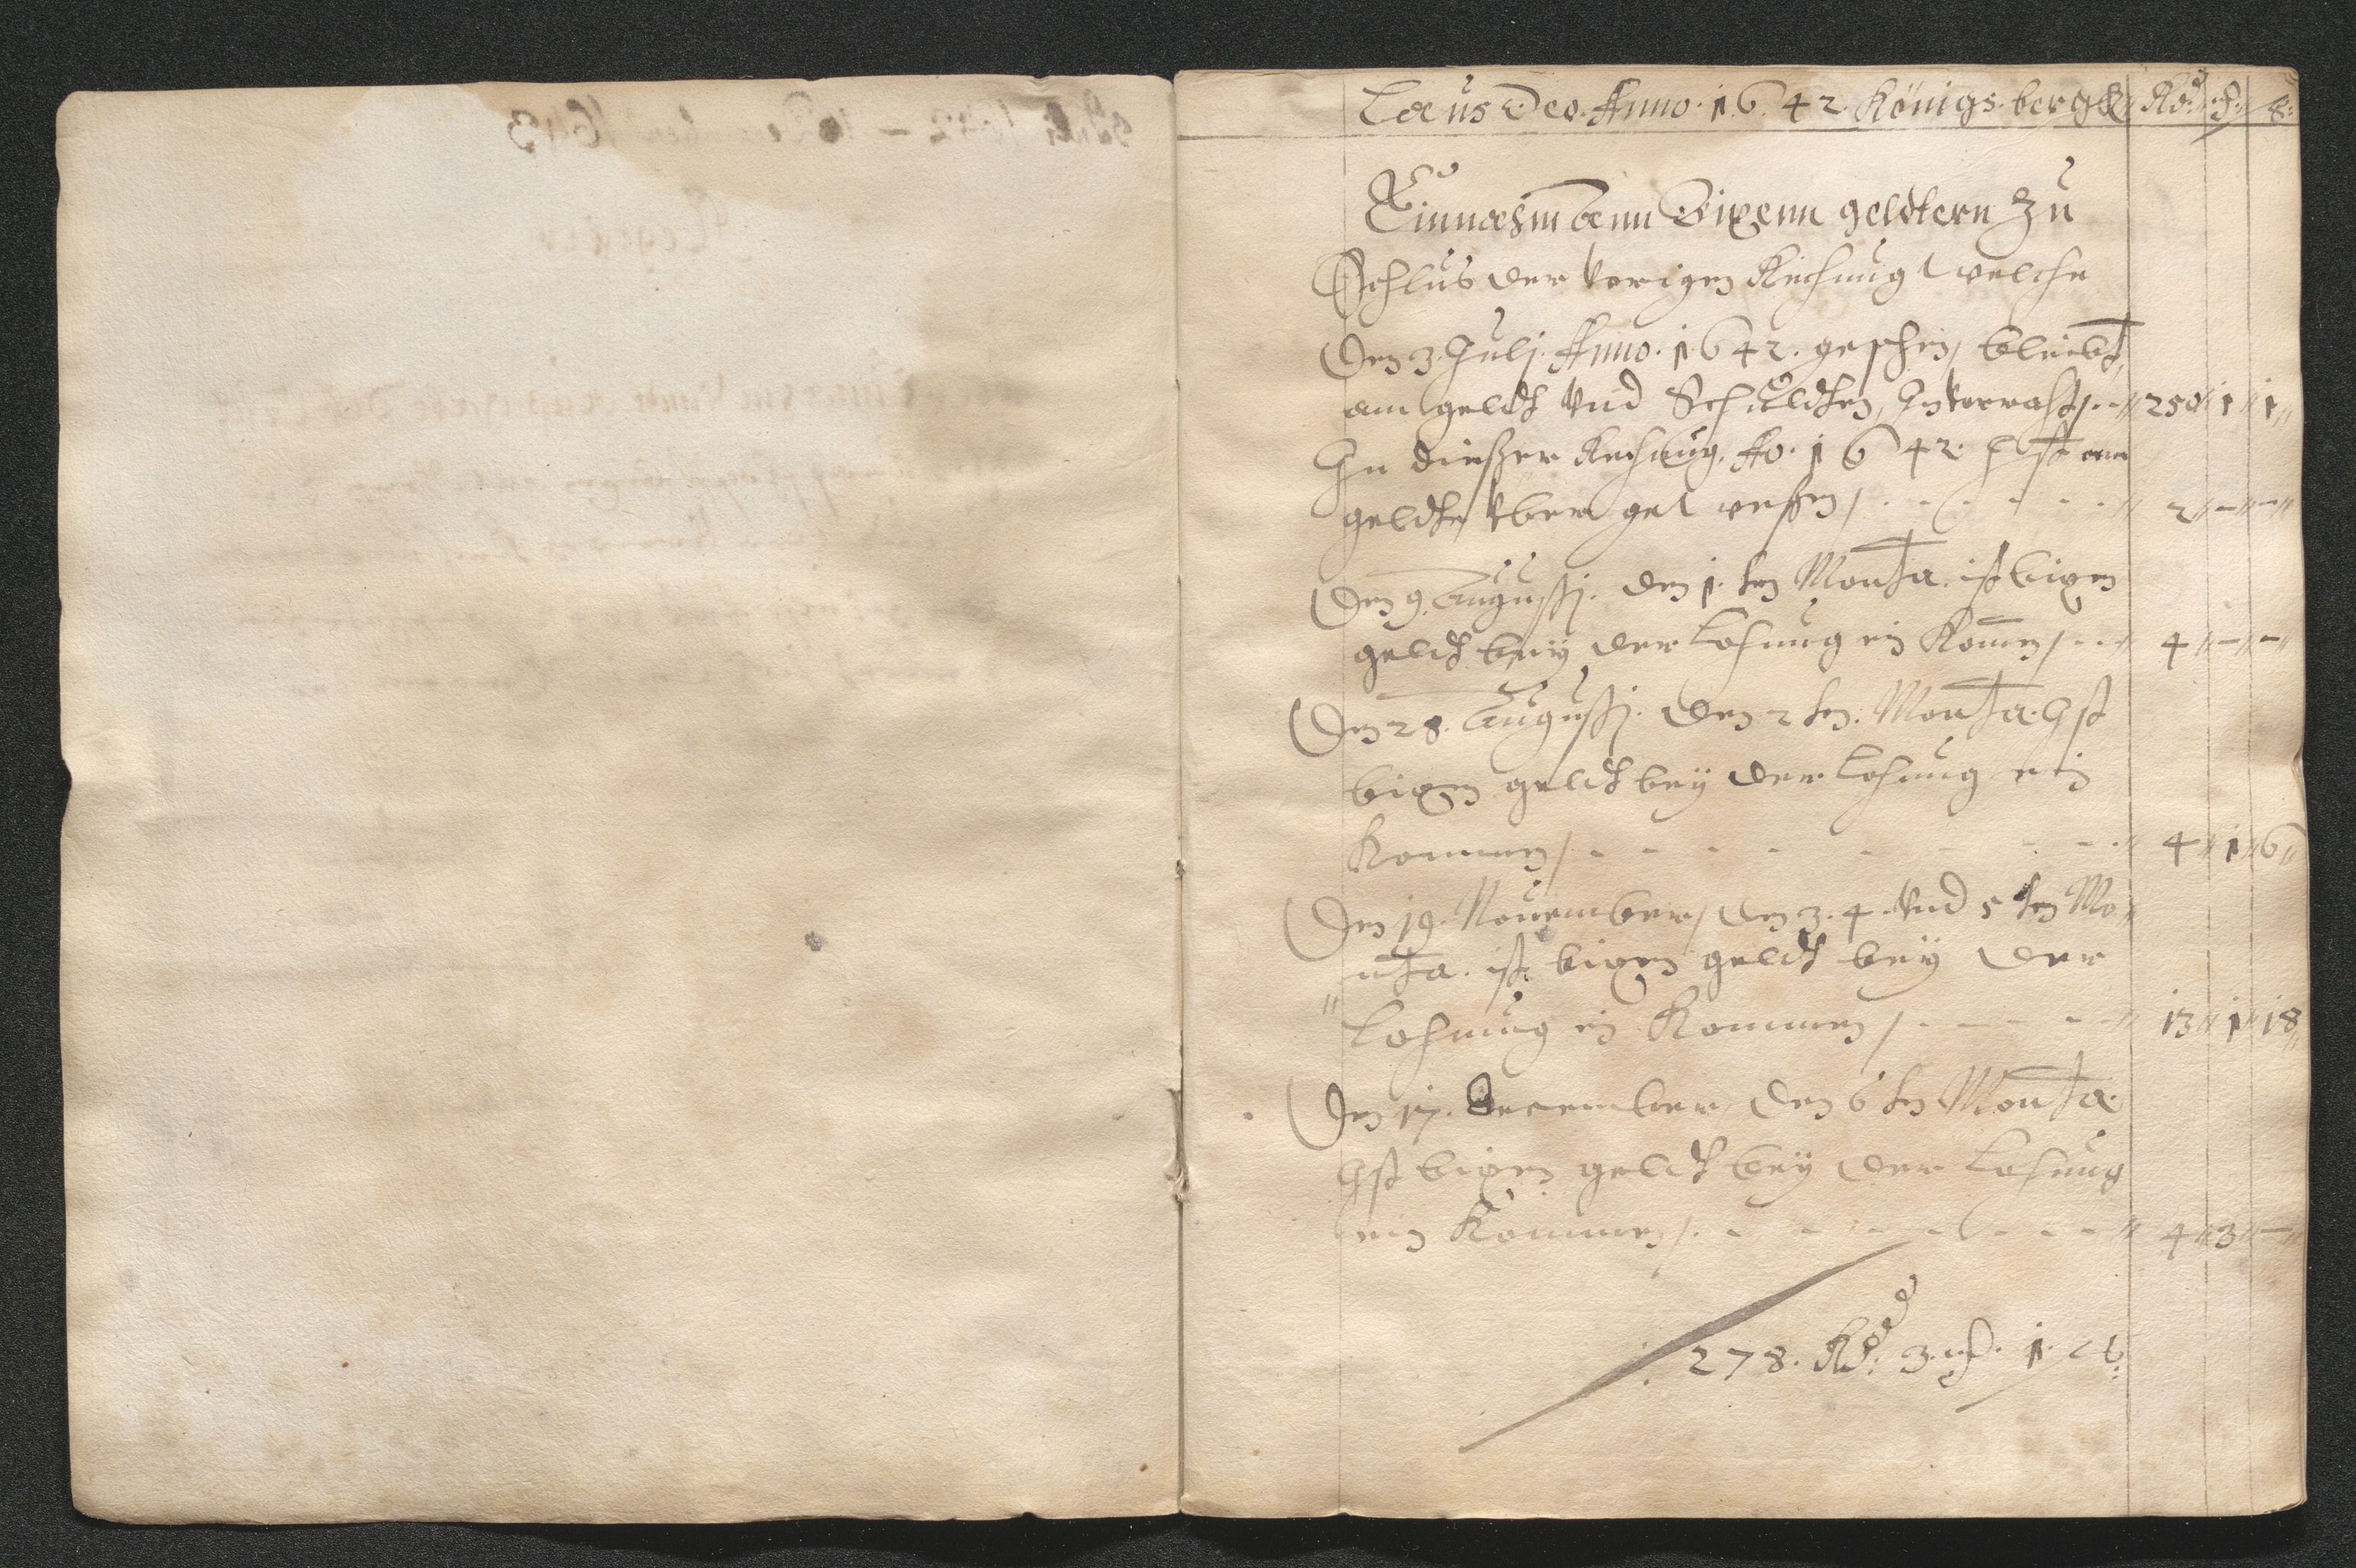 Laus Deo. Anno. 1642. Königs bergk Rd: ort: ß:
Einnahm ann Bixenn geldtern zu
Schlus der vorigen Rechnung welche
Den 3. Julj. Anno. 1642. geschen, bleibt
am geldt vnd Schuldten, In vorrath, 250 1 1
In dießer Rechnung. Ao. 1642. Ist am
geldte vber gewessen, 2 – –
Den 9. Augustj. den 1. ten Monta. ist bixen
geldt beÿ der Lohnung ein Komen, 4 – –
Den 28. Augustj. Den 2 ten. Monta. Ist
bixen geldt beÿ der Lohnung ein
Kommen, 4 1 6
Den 19. Nouember, den 3. 4. vnd 5 ten Mo
nta. ist bixen geldt beÿ der
Lohnung ein Kommen, 13 1 18
Den 17. December, Den 6 ten Monta.
Ist bixen geldt beÿ der Lohnung
ein Kommen, 4 3 –
278. Rd: 3. ort. 1. ß: